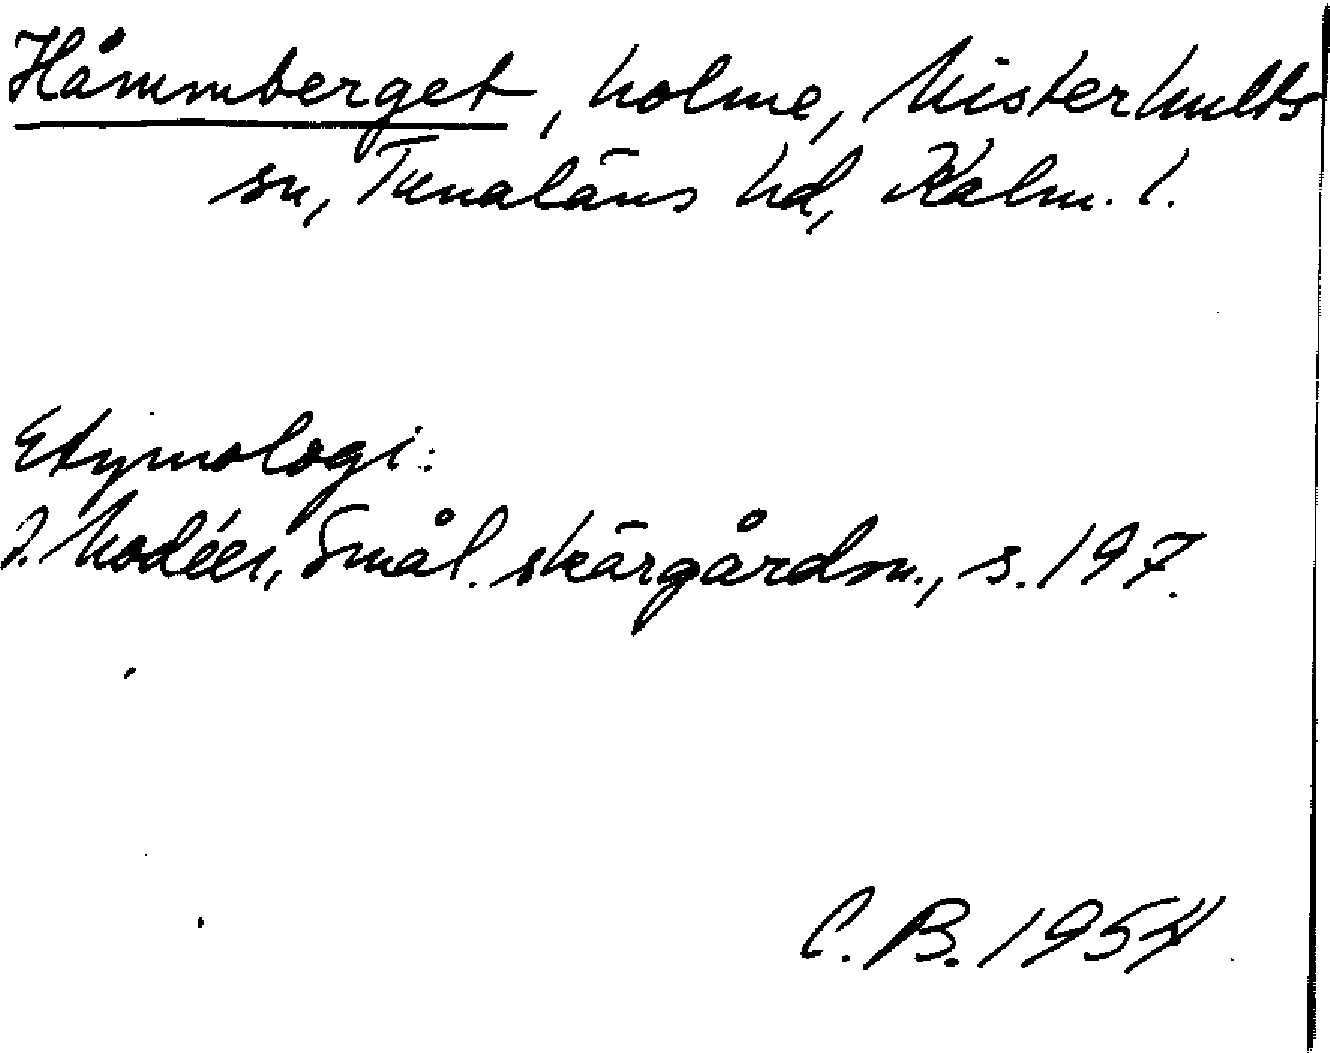 Håmmberget, holme, Misterhults
sn, Tunaläns hd, Kalm. l.
Etymologi:
I. Modéer, Smål. skärgårdsn., s. 197.
C. B. 1954